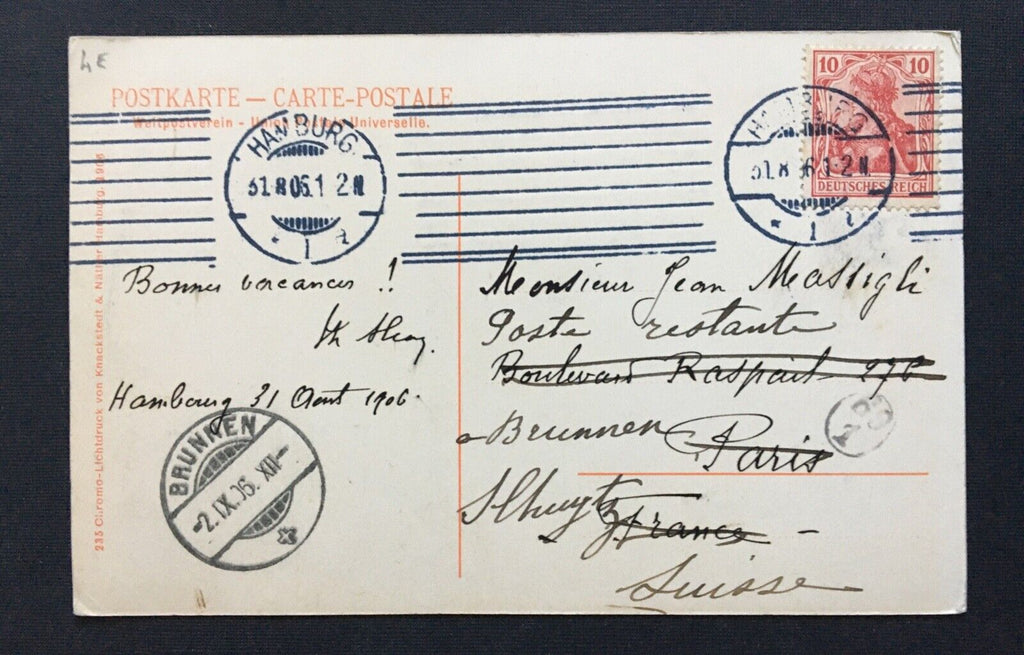 4E
POSTKARTE — CARTE-POSTALE
Weltpostverein - Union Postale Universelle.
HAMBURG.
31.8.06.1-2N
* 1 a
HAMBURG
31.8.06.1-2N
* 1 a
10 10
DEUTSCHES REICH
Bonnes vacances !!
Hambourg 31 Aout 1906
Monsieur Jean Massigli
Poste restante
Boulevard Raspail 276
a Brunnen
Paris
Schwytz
France
Suisse
BRUNNEN
-2.IX.06. XII-
235 Chromo-Lichtdruck von Knackstedt & Näther, Hamburg. 1905